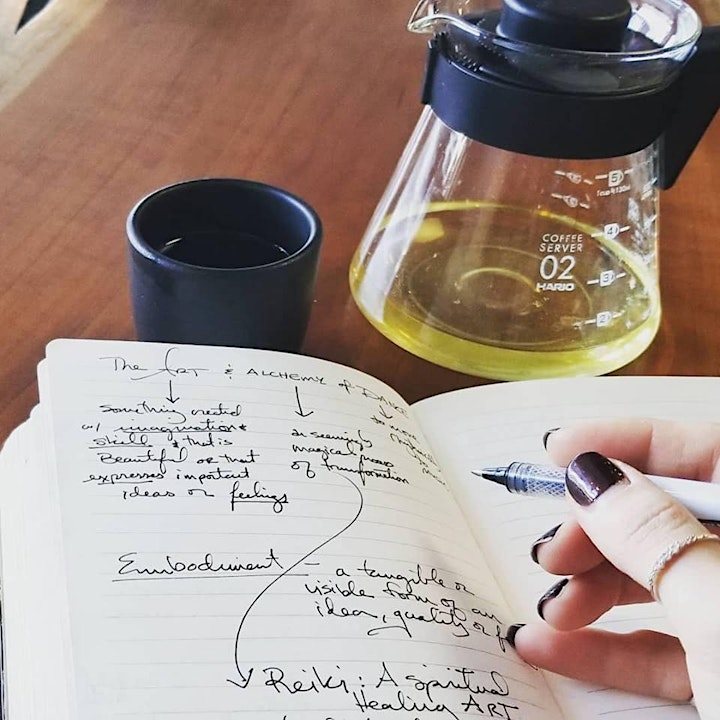 COFFEE
SERVER
02
HARIO
5
1cup=120ml
4
3
2
The Art & Alchemy of Dance
something created
w/ imagination &
skill & that is
Beautiful or that
expresses important
ideas or feelings
a seemingly
magical process
of transformation
to move
to
Embodiment – a tangible or
visible form of an
idea, quality or f
Reiki: A Spiritual
Healing ART